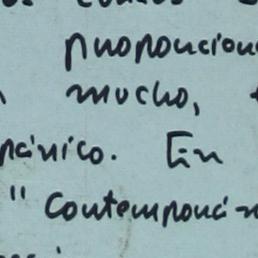 proporciona
mucho,
pánico. En
"Contemporán